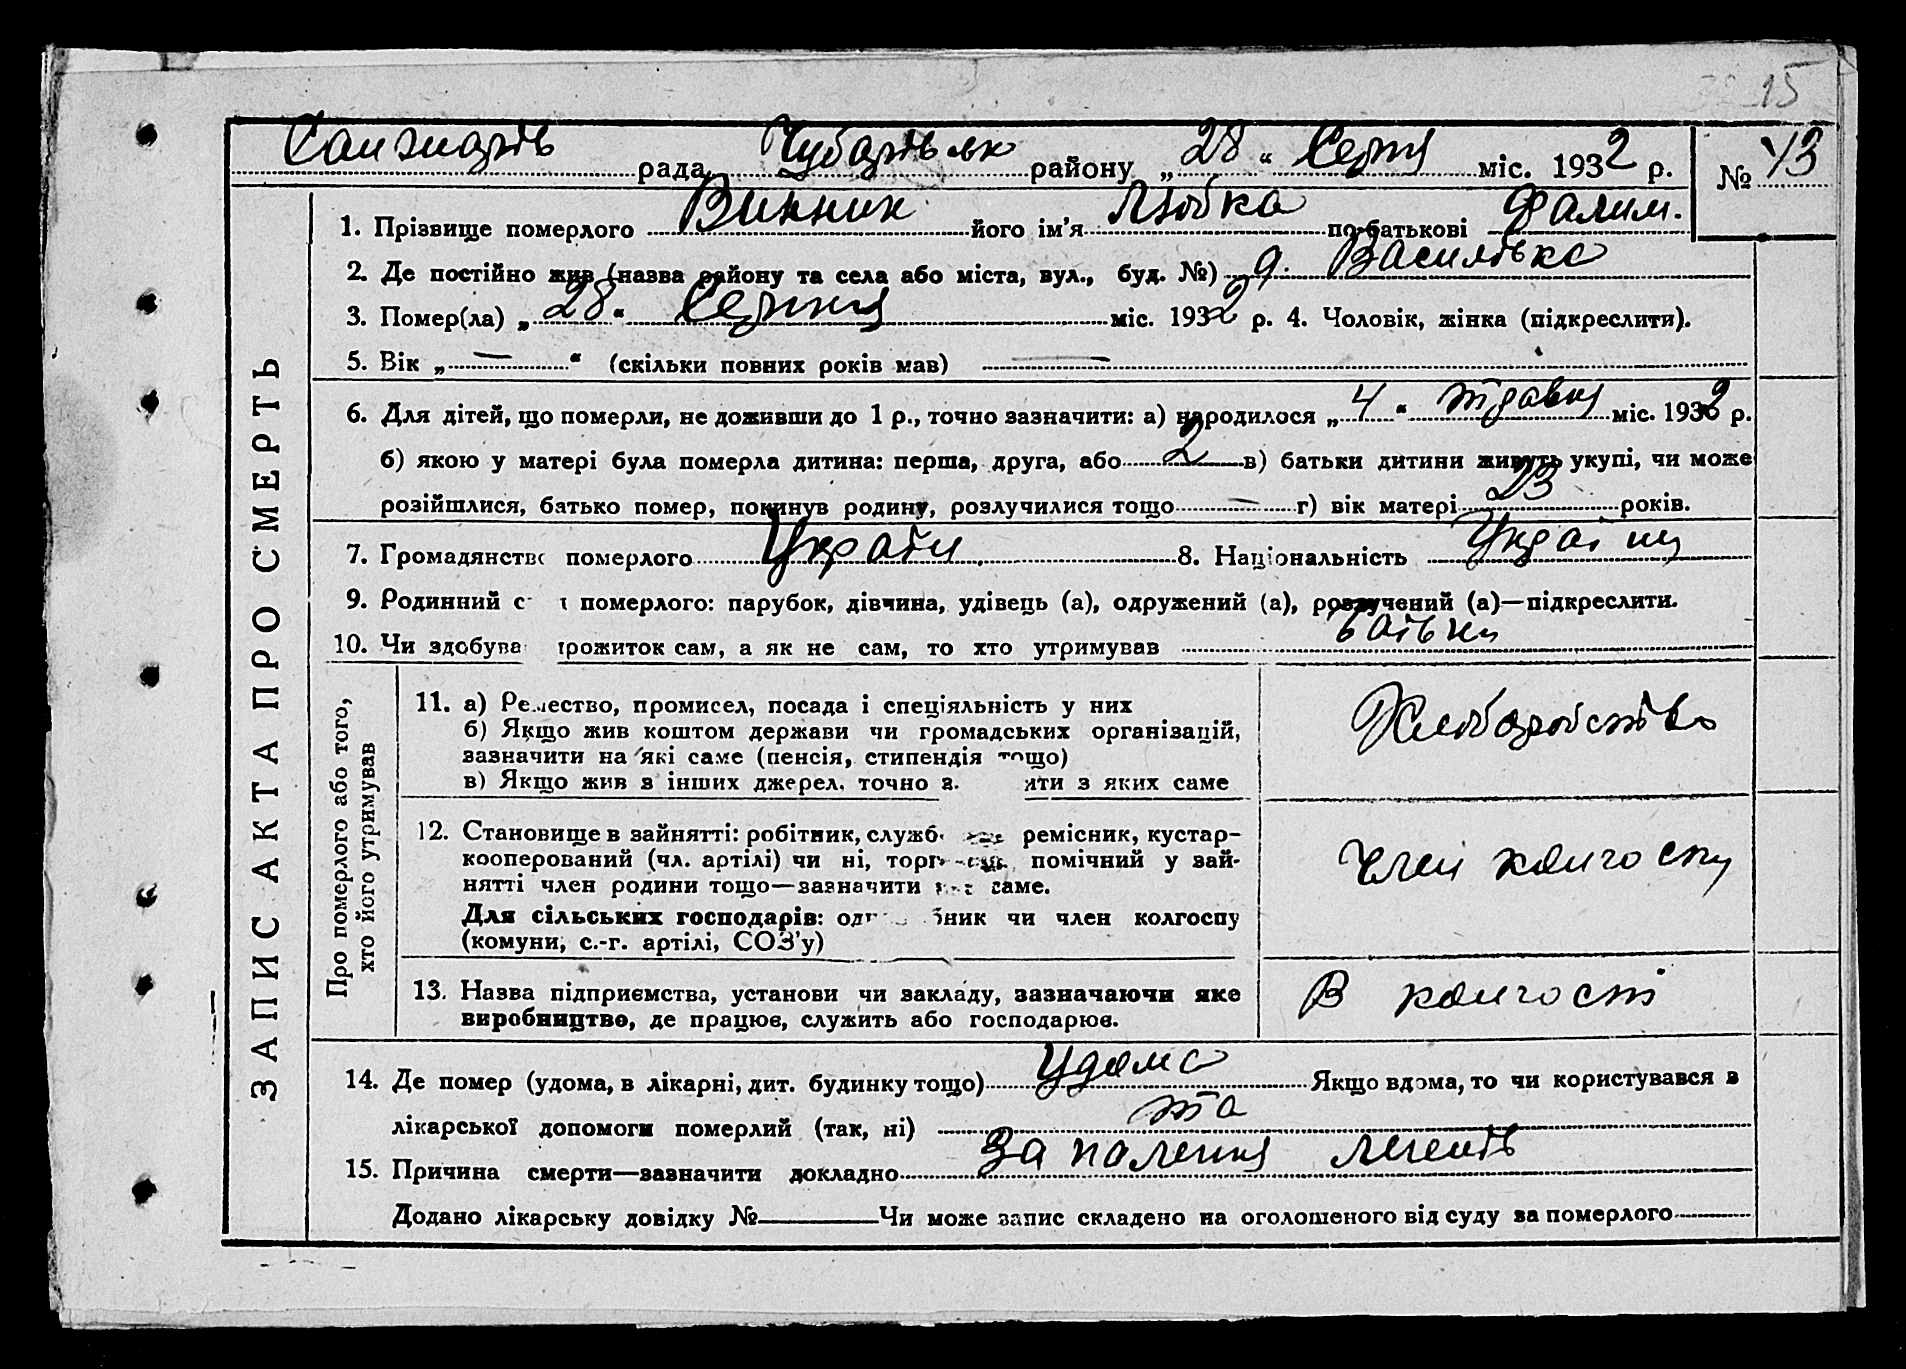 15
Санжарів рада Чубарівськ району „28“ Серпня міс. 1932 р. № 43
ЗАПИС АКТА ПРО СМЕРТЬ
1. Прізвище померлого Винник його ім’я Любка по батькові
2. Де постійно жив (назва району та села або міста, вул., буд. №) Василівка
3. Помер(ла) „28“ Серпня міс. 1932 р. 4. Чоловік, жінка (підкреслити).
5. Вік „—“ (скільки повних років мав) —
6. Для дітей, що померли, не доживши до 1 р., точно зазначити: а) народилося „4“ травня міс. 1932 р.
б) якою у матері була померла дитина: перша, друга, або 2 в) батьки дитини живуть укупі, чи може
розійшлися, батько помер, покинув родину, розлучилися тощо — г) вік матері 23 років.
7. Громадянство померлого 8. Національність
9. Родинний с т померлого: парубок, дівчина, удівець (а), одружений (а), розлучений (а)—підкреслити.
10. Чи здобува прожиток сам, а як не сам, то хто утримував
Про померлого або того,
хто його утримував
11. а) Ремество, промисел, посада і спеціяльність у них
б) Якщо жив коштом держави чи громадських організацій,
зазначити на які саме (пенсія, стипендія тощо)
в) Якщо жив з інших джерел, точно з ити з яких саме
Хліборобство
12. Становище в зайнятті: робітник, службо ремісник, кустар-
кооперований (чл. артілі) чи ні, торг помічний у зай-
нятті член родини тощо—зазначити саме.
Для сільських господарів: одно бник чи член колгоспу
(комуни, с.-г. артілі, СОЗ’у)
Член колгоспу
13. Назва підприємства, установи чи закладу, зазначаючи яке
виробництво, де працює, служить або господарює.
В колгоспі
14. Де помер (удома, в лікарні, дит. будинку тощо) Удома Якщо вдома, то чи користувався з
лікарської допомоги померлий (так, ні) та
15. Причина смерти—зазначити докладно Запалення легенів
Додано лікарську довідку № Чи може запис складено на оголошеного від суду за померлого